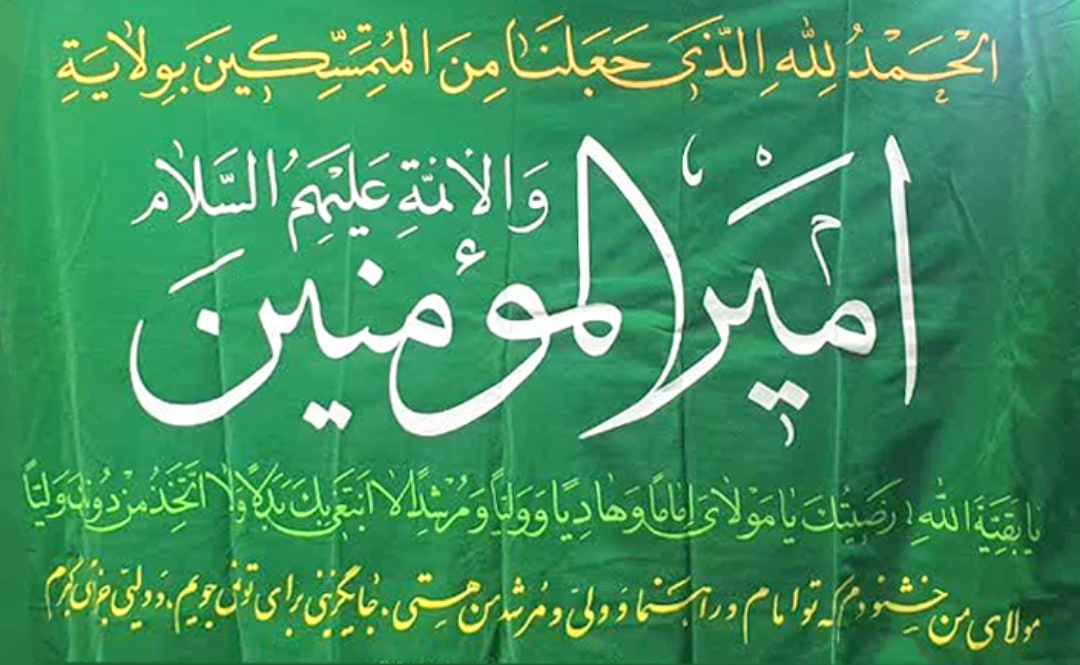 الْحَمْدُ لِلّٰهِ الَّذِي جَعَلَنَا مِنَ الْمُتَمَسِّكِينَ بِوِلَايَةِ
أمير المؤمنين
وَالأئمّةِ عَلَيْهِمُ السَّلَام
يا بَقِيَّةَ اللهِ رَضيتُكَ يا مَوْلايَ اِمَامًا وَهادِيًا وَوَلِيًّا وَمُرْشِدًا لا ابْتَغي بِكَ بَدَلًا وَلا اتَّخِذُ مِنْ دُونِكَ وَلِيًّا
مولای من خشنودم که تو امام و راهنما و ولیّ و مُرشد من هستی. جایگزینی برای تو نمی جویم. و ولیّی جز تو